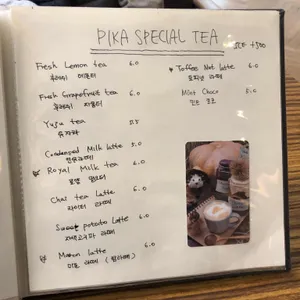 PIKA SPECIAL TEA
Fresh Lemon tea 6.0
Fresh Grapefruit tea 6.0
Yuju tea 5.5
유자차
Condensed Milk latte 5.5
연유라떼
Royal Milk tea 6.0
로얄 밀크티
Chai tea Latte 6.0
차이티 라떼
Sweet potato Latte 6.0
라떼
Maron latte 6.0
라떼
Toffee Nut latte 6.0
토피넛 라떼
Mint Choco 6.0
민트 초코